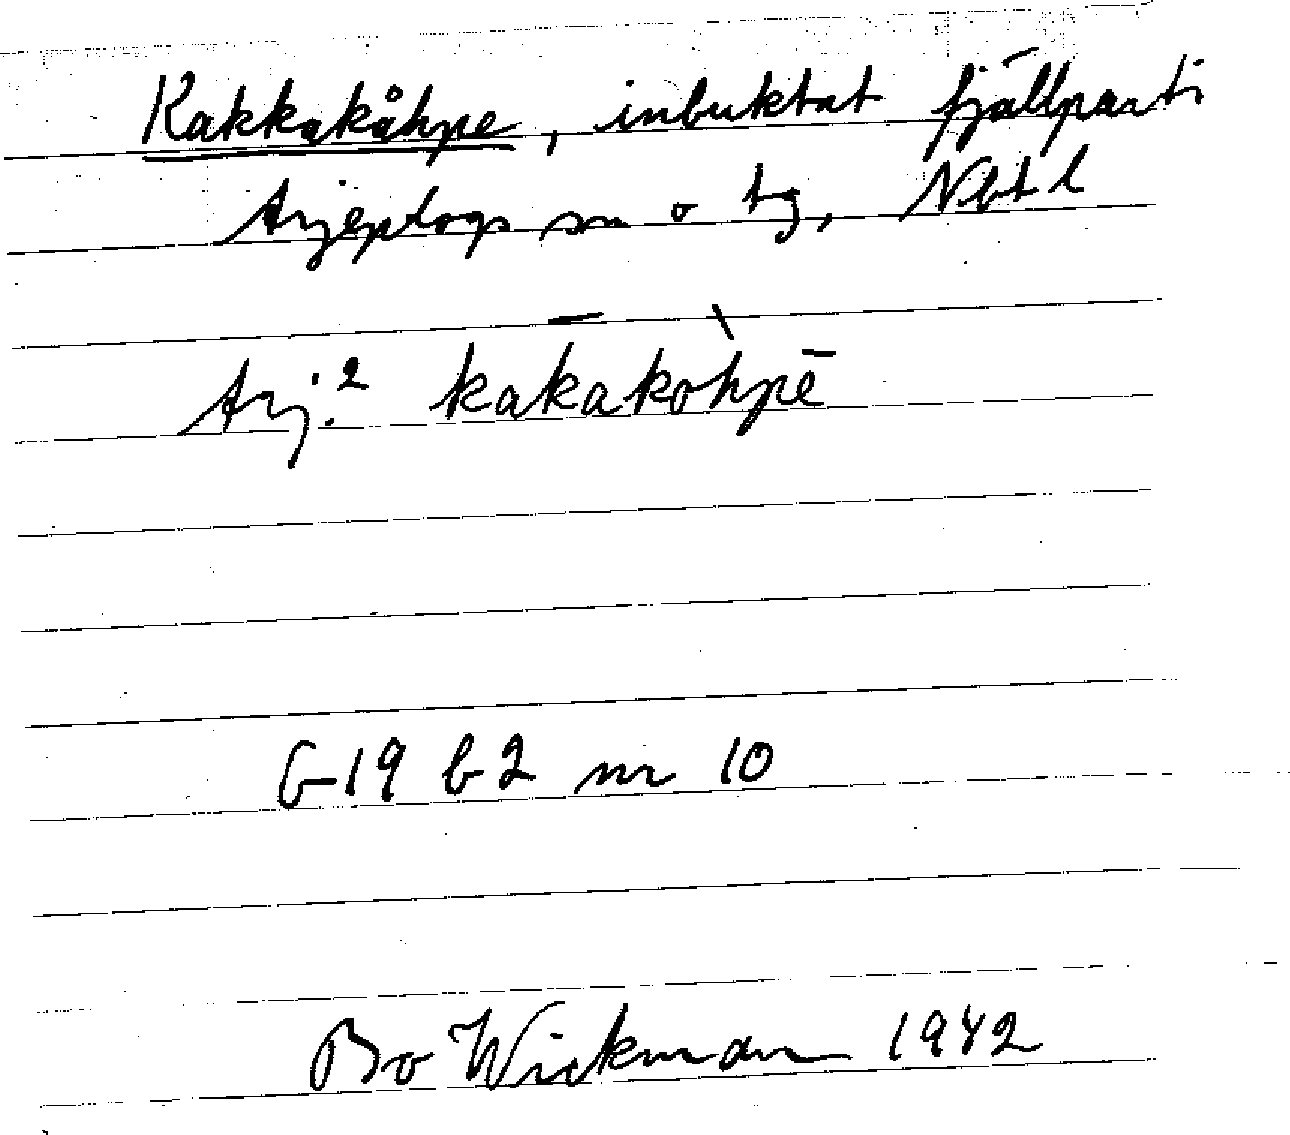 Kakkakåhpe, inbuktat fjällparti
Arjeplogs sn o tg, Nbt l
Arj.² kak̄akòhpē
G 19 b 2 nr 10
Bo Wickman 1942